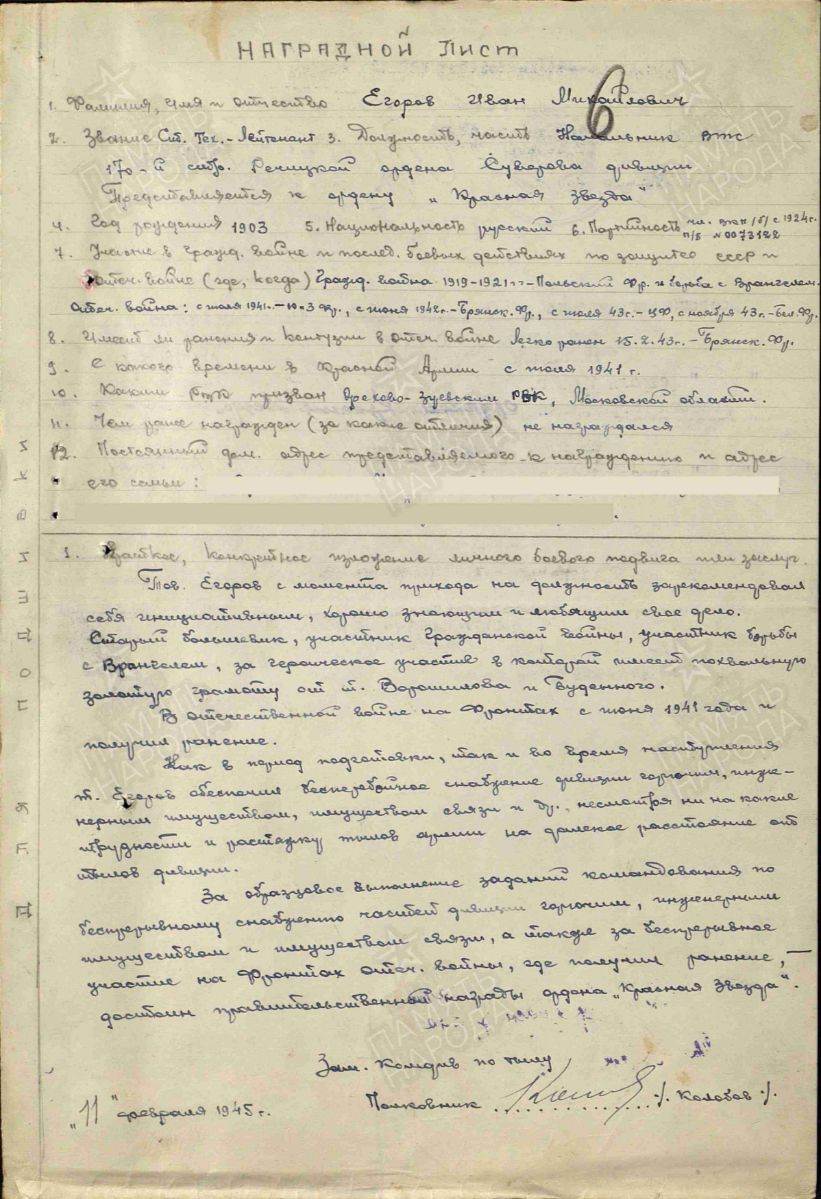 НАГРАДНОЙ ЛИСТ
6
1. Фамилия, имя и отчество Егоров Иван Михайлович
2. Звание Ст. Тех.-Лейтенант 3. Должность, часть Начальник ВТС
170-й стр. Речицкой ордена Суворова дивизии
Представляется к ордену „Красная Звезда"
4. Год рождения 1903 5. Национальность русский 6. Партийность чл. ВКП/б/ с 1924г.
п/б №0073122
7. Участие в гражд. войне и послед. боевых действиях по защите СССР и
отеч. войне (где, когда) Гражд. война 1919-1921гг-Польский фр. и борьба с Врангелем.
Отеч. война: с июля 1941-10-3 фр., с июня 1942г.-Брянск. фр., с июля 43г.-ЦФ, с ноября 43г.-Бел. фр.
8. Имеет ли ранения и контузии в отеч. войне Легко ранен 15.2.43г.-Брянск. фр.
9. С какого времени в Красной Армии с июля 1941 г.
10. Каким РВК призван Орехово-Зуевским РВК, Московской области.
11. Чем ранее награжден (за какие отличия) не награждался
12. Постоянный дом. адрес представляемого к награждению и адрес
его семьи:
1. Краткое, конкретное изложение личного боевого подвига или заслуг.
Тов. Егоров с момента прихода на должность зарекомендовал
себя инициативным, хорошо знающим и любящим свое дело.
Старый большевик, участник Гражданской войны, участник борьбы
с Врангелем, за героическое участие в которой имеет похвальную
золотую грамоту от т. Ворошилова и Буденного.
В отечественной войне на Фронтах с июня 1941 года и
получил ранение.
Как в период подготовки, так и во время наступления
т. Егоров обеспечил бесперебойное снабжение дивизии горючим, инже-
нерным имуществом, имуществом связи и др., несмотря ни на какие
трудности и растяжку тылов армии на далекое расстояние от
тылов дивизии.
За образцовое выполнение заданий командования по
беспрерывному снабжению частей дивизии горючим, инженерным
имуществом и имуществом связи, а также за беспрерывное
участие на Фронтах отеч. войны, где получил ранение,-
достоин правительственной награды ордена „Красная Звезда".
Зам. Комдив по тылу
Полковник ./. Колобов ./.
„11" февраля 1945г.
ДЛЯ ПОДШИВКИ
ПАМЯТЬ НАРОДА